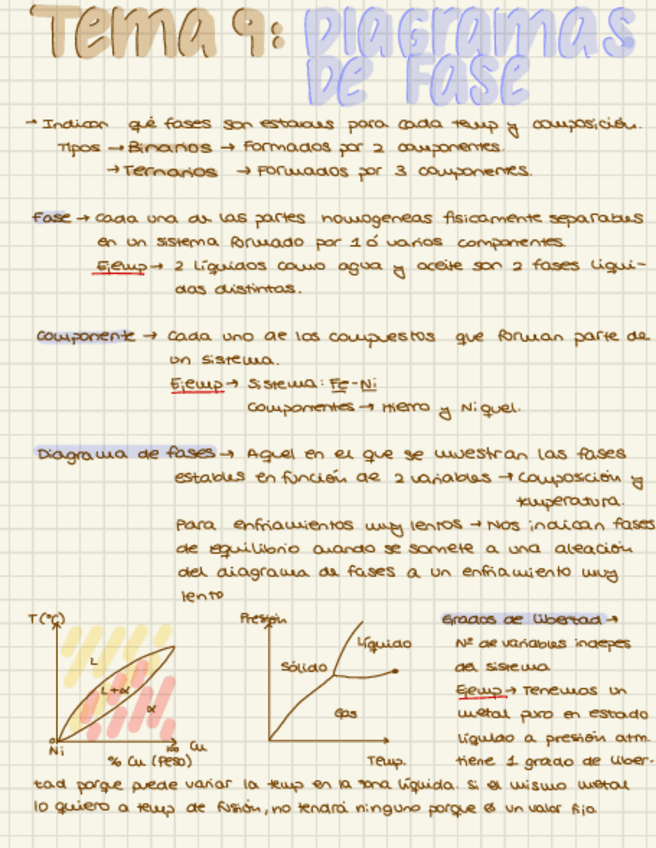 Tema 9: DIAGRAMAS
DE FASE
→ Indican qué fases son estables para cada temp y composición.
Tipos → Binarios → Formados por 2 componentes.
→ Ternarios → Formados por 3 componentes.
Fase → cada una de las partes homogeneas fisicamente separables
en un sistema formado por 1 ó varios componentes
Ejemp → 2 líquidos como agua y aceite son 2 fases líqui-
das distintas.
Componente → Cada uno de los compuestos que forman parte de
un sistema.
Ejemp → Sistema: Fe-Ni
Componentes → Hierro y Niquel.
Diagrama de fases → Aquel en el que se muestran las fases
estables en función de 2 variables → Composición y
temperatura.
Para enfriamientos muy lentos → Nos indican fases
de equilibrio cuando se somete a una aleación
del diagrama de fases a un enfriamiento muy
lento
T(ºC)
L
L+α
α
Ni
100 Cu
% Cu (Peso)
Presión
Líquido
Sólido
Gas
Temp.
Grados de libertad →
Nº de variables indepes
del sistema
Ejemp → Tenemos un
metal puro en estado
líquido a presión atm.
tiene 1 grado de liber-
tad porque puede variar la temp en la zona líquida. Si el mismo metal
lo quiero a temp de fusión, no tendrá ninguno porque es un valor fijo